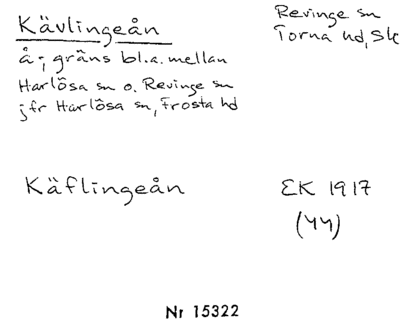 Kävlingeån
Revinge sn
Torna hd, Sk
å; gräns bl.a. mellan
Harlösa sn o. Revinge sn
jfr Harlösa sn, Frosta hd
Käflingeån
EK 1917
(44)
Nr 15322